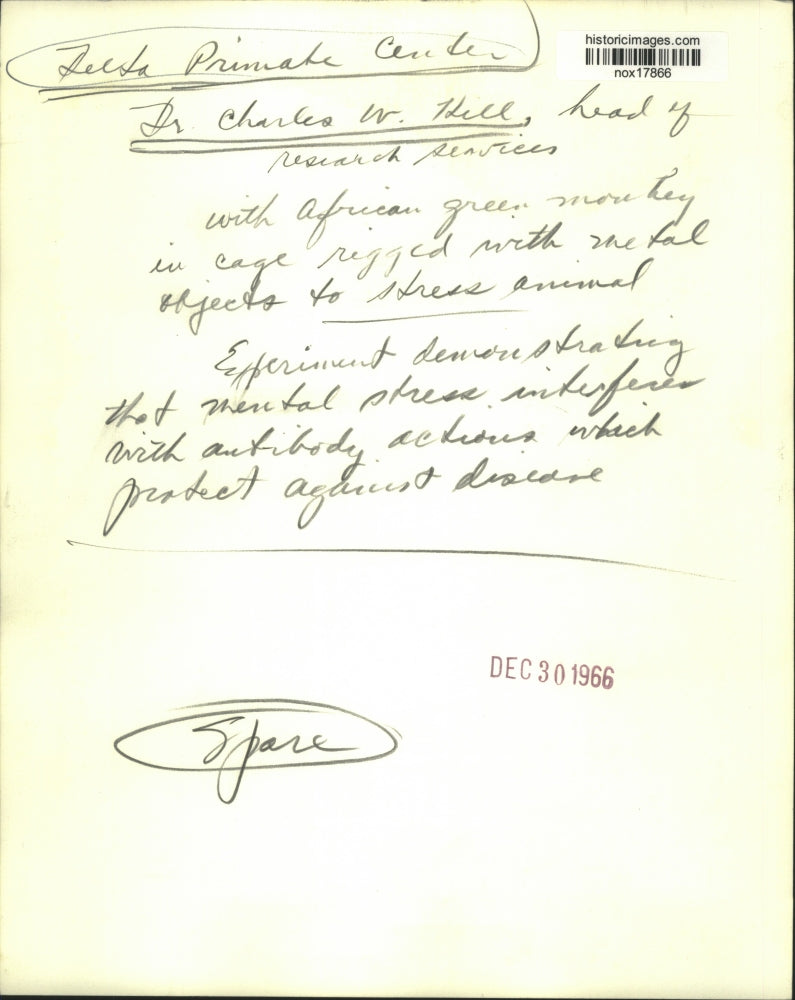 historicimages.com
nox17866
Delta Primate Center
Dr. Charles W. Hill, head of
research services
with African green monkey
in cage rigged with metal
objects to stress animal
Experiment demonstrating
that mental stress interferes
with antibody actions which
protect against disease
DEC 30 1966
Spare